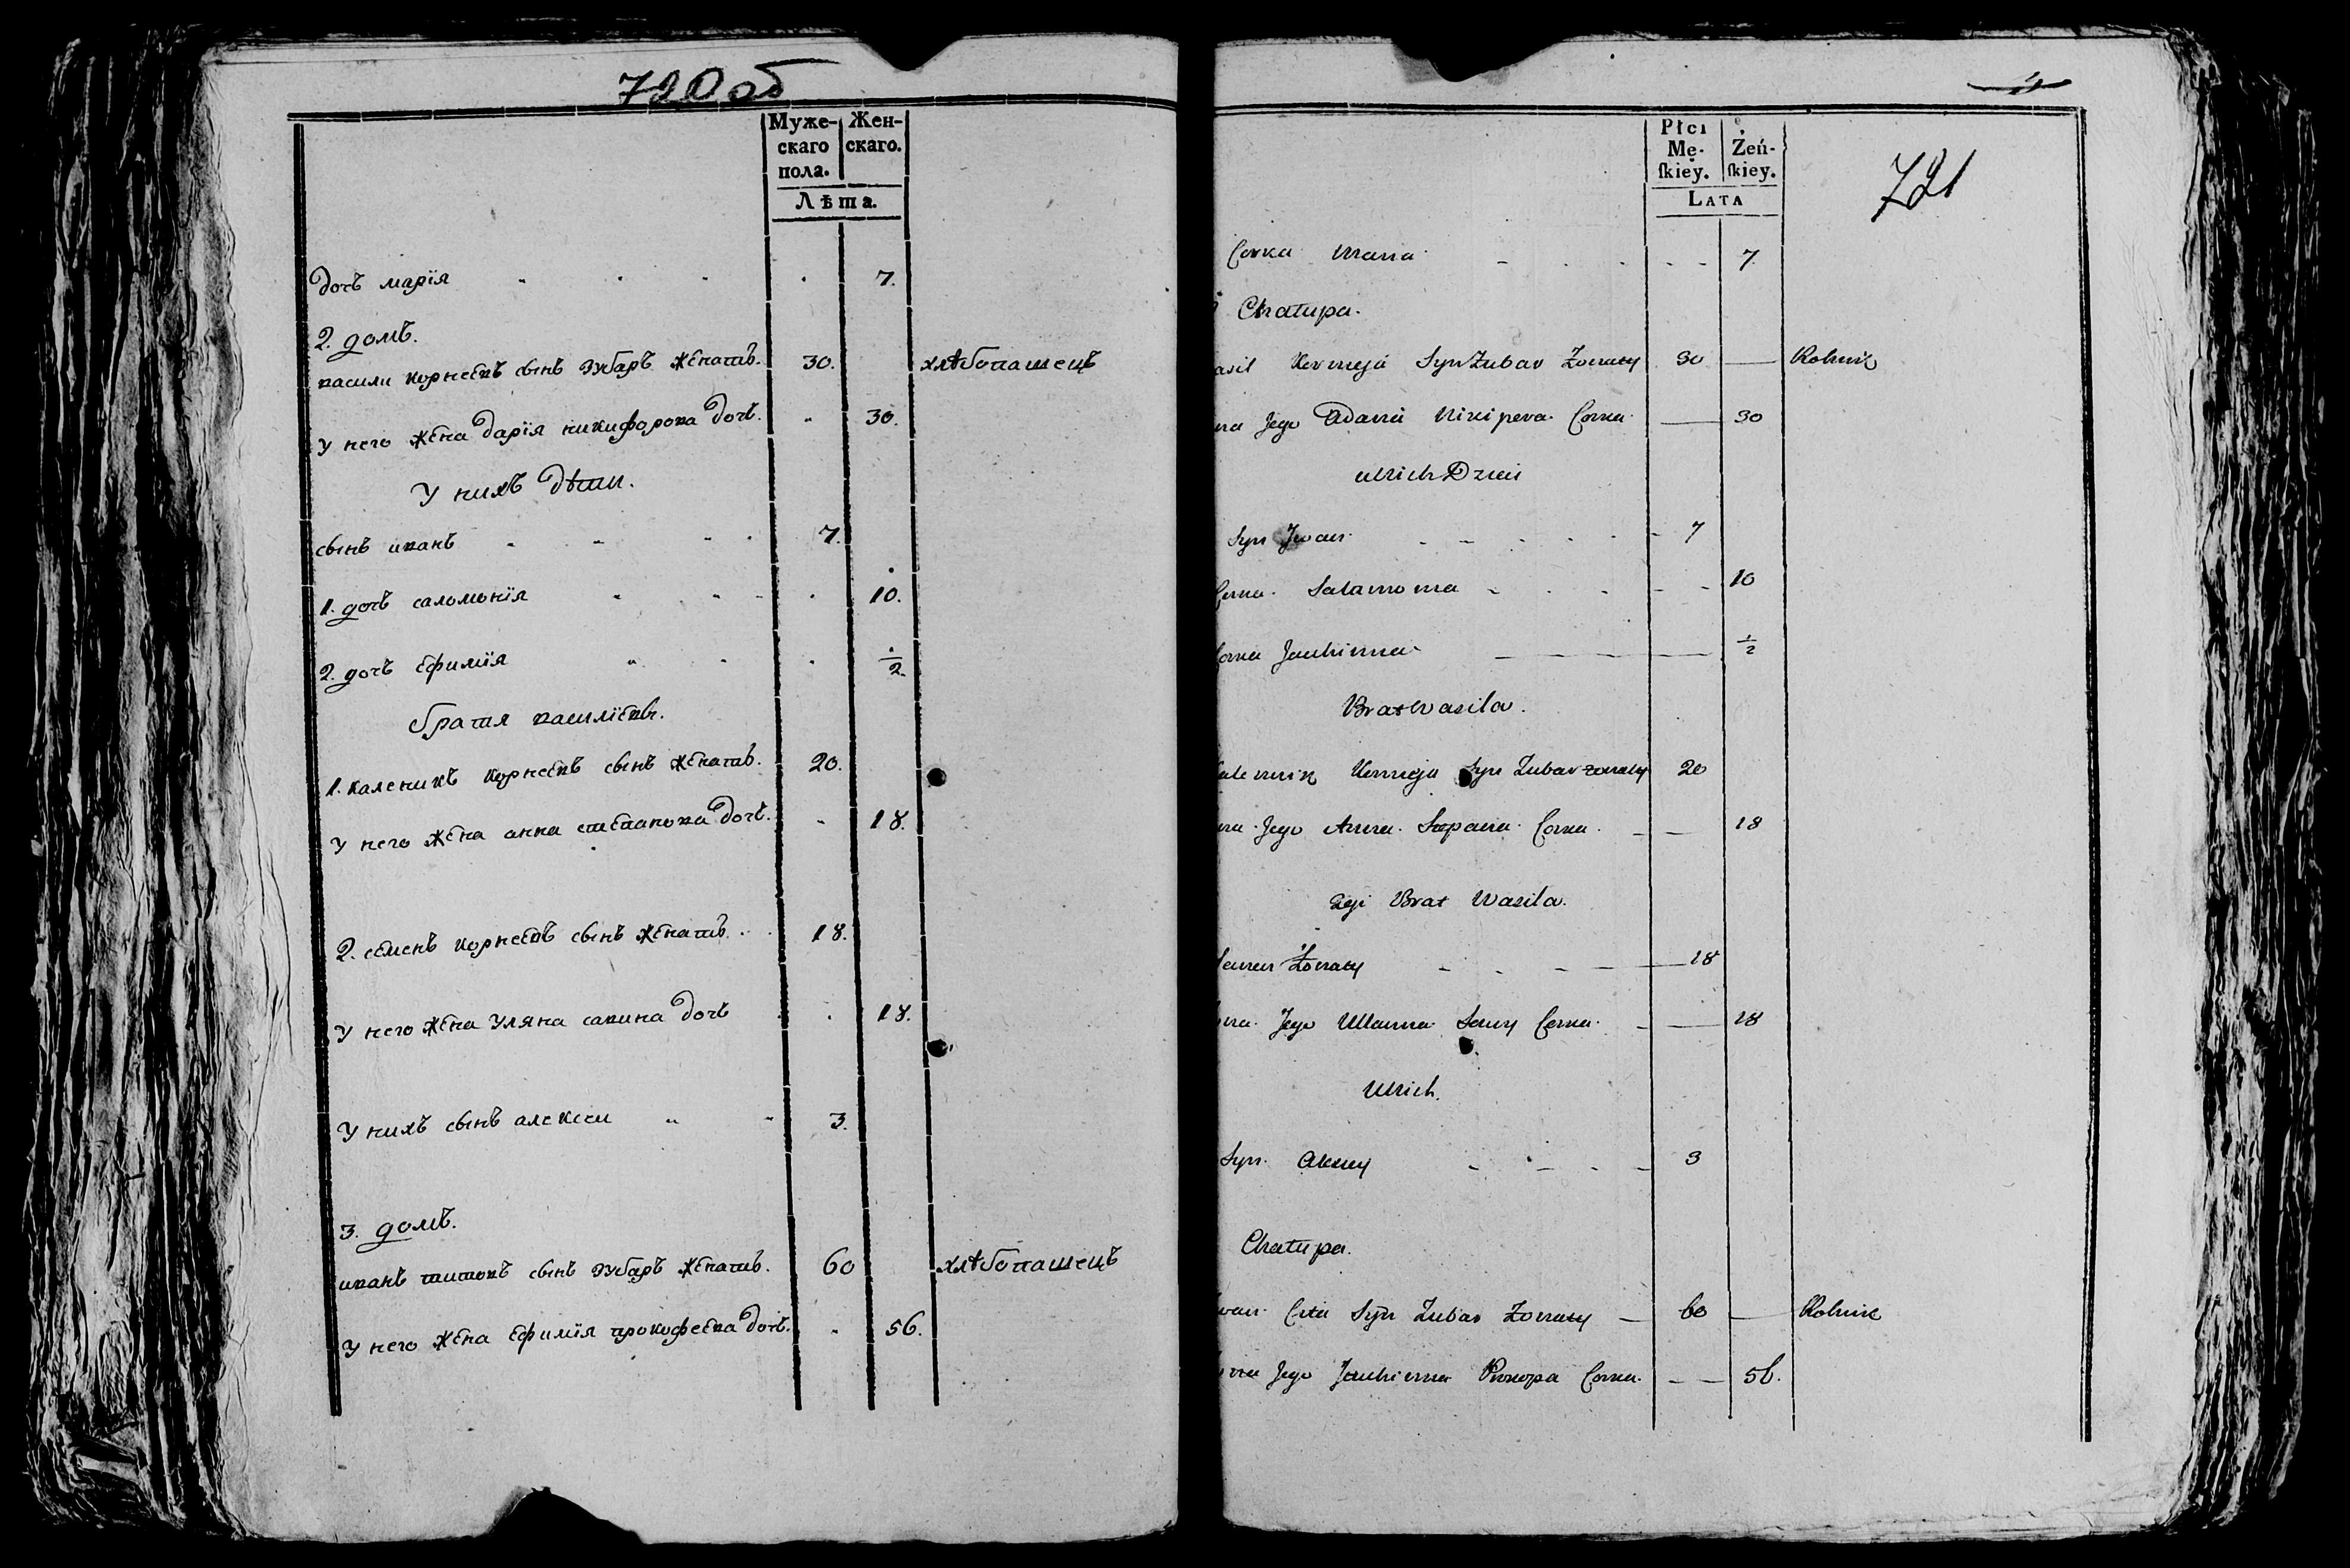 720 об
Муже- Жен-
скаго скаго.
пола.
Лѣта.
дочъ марїя 7.
2. домъ.
василй корнеевъ сынъ зубаръ женатъ. 30. хлѣбопашецъ
у него жена дарїя никифорова дочъ. 30.
У нихъ дѣти.
сынъ иванъ 7.
1. дочъ саломонїя 10.
2. дочъ ефимїя 1/2.
братя василїевы.
1. каленикъ корнеевъ сынъ женатъ. 20.
у него жена анна степанова дочъ. 18.
2. семенъ корнеевъ сынъ женатъ. 18.
у него жена уляна савина дочъ 18.
у нихъ сынъ алексеи 3.
3. домъ.
иванъ титовъ сынъ зубаръ женатъ. 60 хлѣбопашецъ
у него жена ефимїя прокофеева дочъ. 56.
721
Płci
Mę- Żeń-
ſkiey. ſkiey.
LATA
Corka Maria 7.
Chatupa.
asil Kernieja Syn Zubar Zonaty 30 Rolnik
na Jego Adaria Nikipera Corka 30
u Nich Dzieci
Syn Jwan 7
Corka Salamonia 10
Corka Jauhinia 1/2
Brat Wasila.
alennik Kernieja Syn Zubar zonaty 20
na Jego Anna Scepana Corka 18
Brat Wasila.
Semen Żonaty 18
na Jego Ullanna Sawy Corka 18
U Nich.
Syn Alexiey 3
Chatupa.
wan Cita Syn Zubar Zonaty 60 Rolnik
na Jego Jauhinia Prokopa Corka 56.